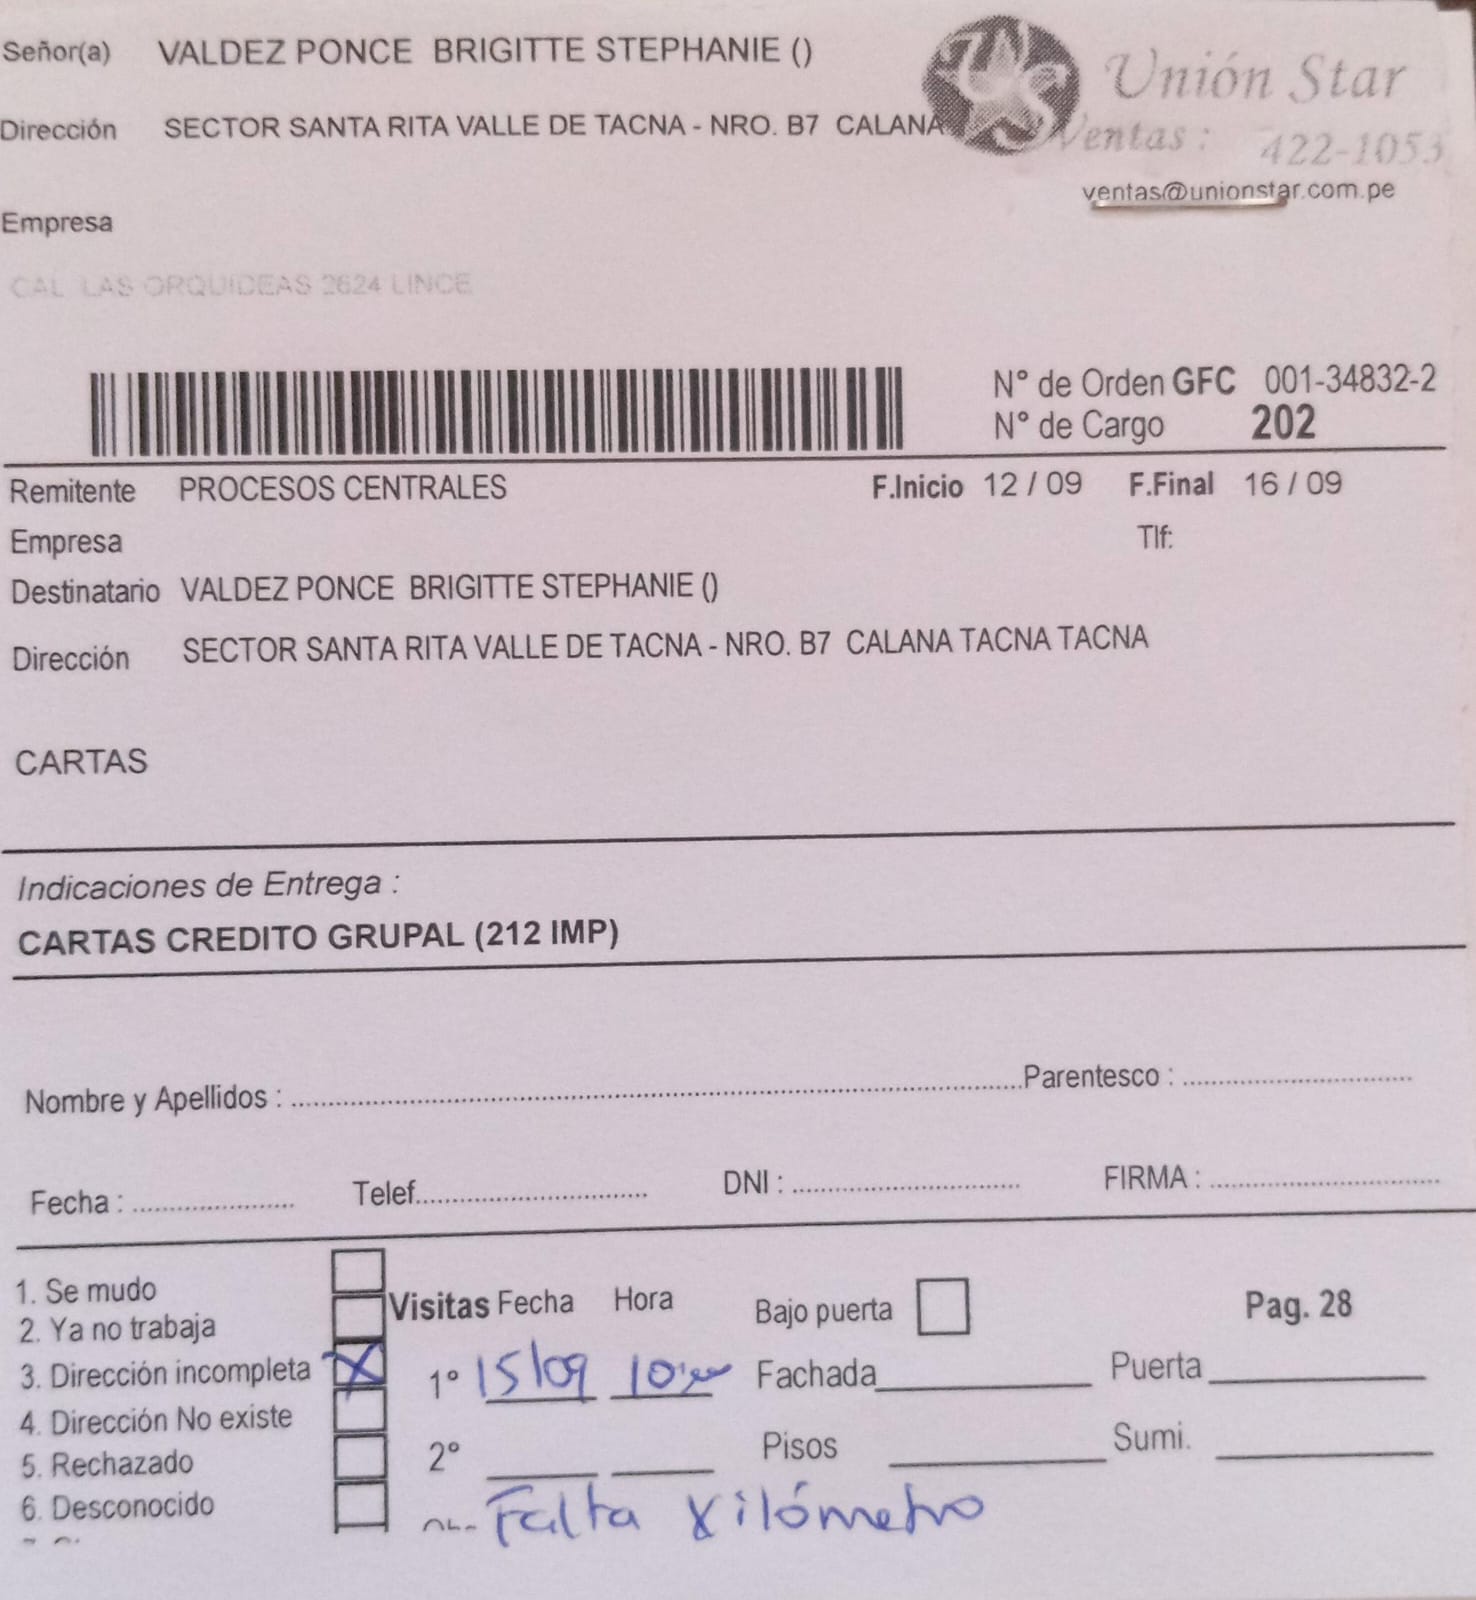 Señor(a) VALDEZ PONCE BRIGITTE STEPHANIE ()
Unión Star
Dirección SECTOR SANTA RITA VALLE DE TACNA - NRO. B7 CALANA
Ventas : 422-1053
ventas@unionstar.com.pe
Empresa
CAL LAS ORQUIDEAS 2624 LINCE
N° de Orden GFC 001-34832-2
N° de Cargo 202
Remitente PROCESOS CENTRALES F.Inicio 12 / 09 F.Final 16 / 09
Empresa Tlf:
Destinatario VALDEZ PONCE BRIGITTE STEPHANIE ()
Dirección SECTOR SANTA RITA VALLE DE TACNA - NRO. B7 CALANA TACNA TACNA
CARTAS
Indicaciones de Entrega :
CARTAS CREDITO GRUPAL (212 IMP)
Nombre y Apellidos : Parentesco :
Fecha : Telef. DNI : FIRMA :
1. Se mudo
2. Ya no trabaja
3. Dirección incompleta X
4. Dirección No existe
5. Rechazado
6. Desconocido
Visitas Fecha Hora Bajo puerta Pag. 28
1° 15/09 Fachada Puerta
2° Pisos Sumi.
Falta Kilómetro